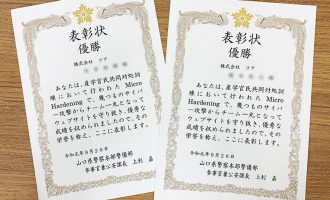 表彰状
優勝
株式会社 コア
あなたは、産学官民共同対処訓
練において行われた Micro
Hardening で、幾つものサイバ
ー攻撃からチーム一丸となって
ウェブサイトを守り抜き、優秀な
成績を収められましたので、その
栄誉を称え、ここに表彰します。
令和元年9月26日
山口県警察本部警備部
参事官兼公安課長 上利
表彰状
優勝
株式会社 コア
あなたは、産学官民共同対処訓
練において行われた Micro
Hardening で、幾つものサイバ
ー攻撃からチーム一丸となって
ウェブサイトを守り抜き、優秀な
成績を収められましたので、その
栄誉を称え、ここに表彰します。
令和元年9月26日
山口県警察本部警備部
参事官兼公安課長 上利